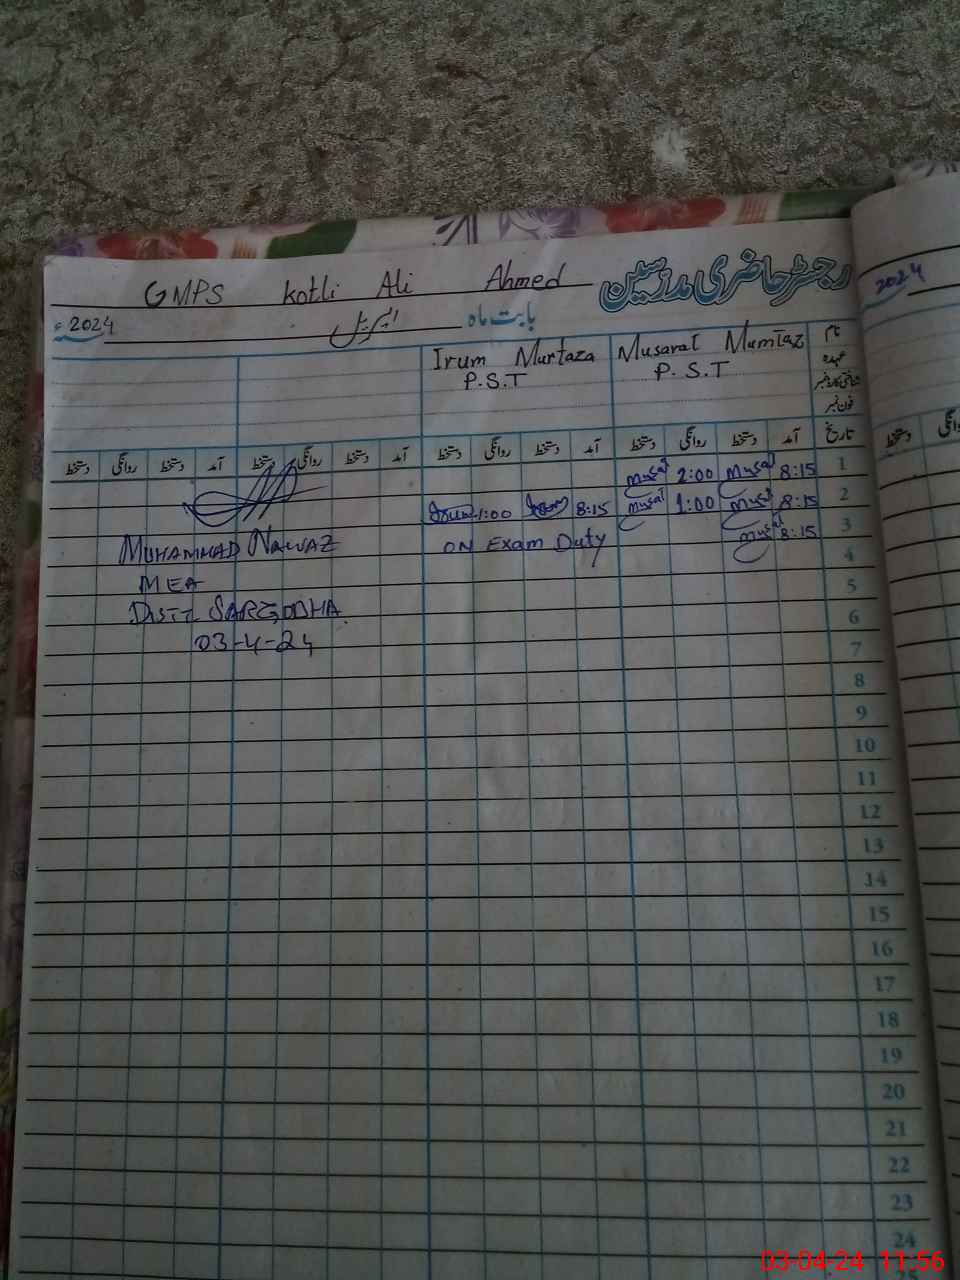 GMPS Kotli Ali Ahmed رجسٹر حاضری مدرسین
بابت ماہ اپریل 2024ء
2024
نام Musarat Mumtaz Irum Murtaza
عہدہ P.S.T P.S.T
شناختی کارڈ نمبر
فون نمبر
تاریخ آمد دستخط روانگی دستخط آمد دستخط روانگی دستخط آمد دستخط روانگی دستخط آمد دستخط روانگی دستخط
دستخط
1 8:15 Musat 2:00 Musat
2 8:15 Musat 1:00 Musat 8:15 Irum 1:00 Irum
3 8:15 Musat ON Exam Duty
4
5
6
7
8
9
10
11
12
13
14
15
16
17
18
19
20
21
22
23
24
MUHAMMAD NAWAZ
MEA
DISTT SARGODHA
03-4-24
03-04-24 11:56